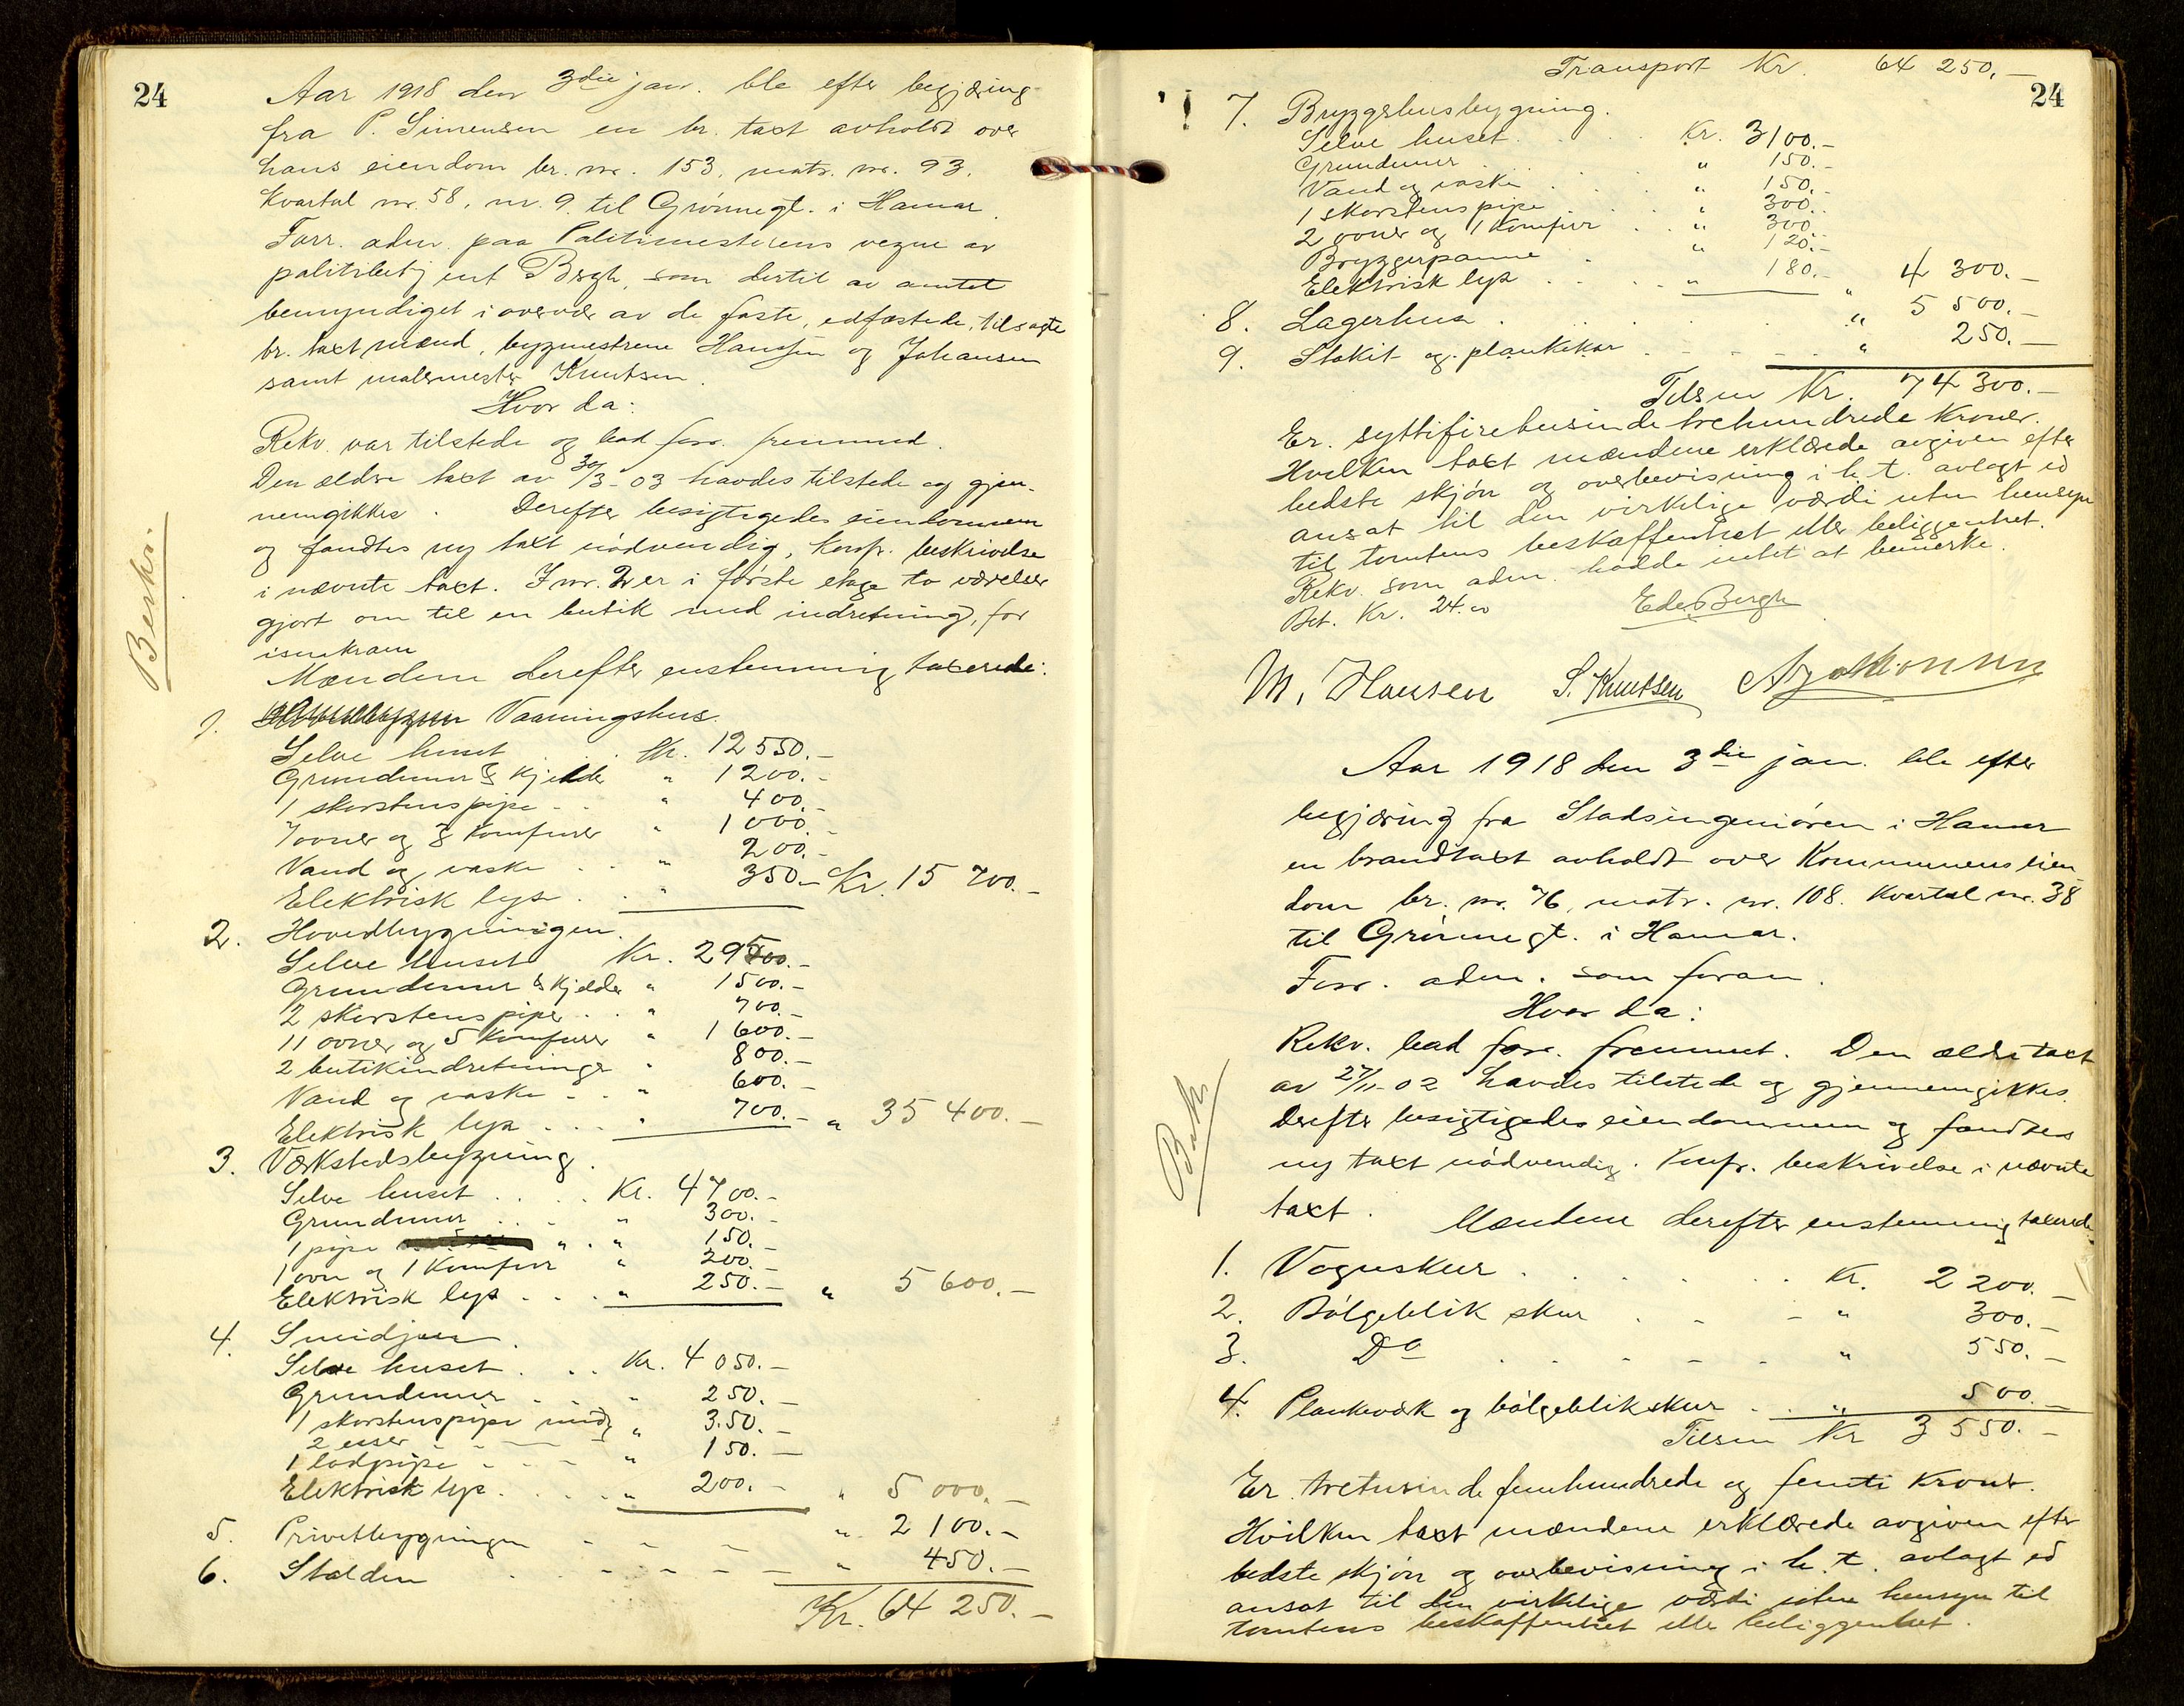 24
Aar 1918 den 3die jan. ble efter begjæring
fra P. Simensen en br. taxt avholdt over
hans eiendom br. nr. 153, matr. nr. 93.
Kvartal nr. 58, nr. 9. til Grønnegt. i Hamar.
Forr. adm. paa Politimesterens vegne av
politibetjent Bergh, som dertil av amtet
bemyndiget i overvær av de faste, edfæstede, tilsagte
br. taxtmænd, bygmestrene Hanssen og Johansen
samt malermester Knutsen.
Hvor da:
Rekv. var tilstede og bad forr. fremmed.
Den ældre taxt av 30/3-03 havdes tilstede og gjen-
nemgikkes. Derefter besigtigedes eiendommen
og fandtes ny taxt nødvendig, konf. beskrivelse
i nævnte taxt. I nr. 2 er i første etage to værelser
gjort om til en butik med indretning, for
ismkram
Mændene derefter enstemmig taxerede:
Beskr.
1. Vaaningshus.
Selve huset . . . Kr. 12 550.-
Grundmur & Kjelder " 1 200.-
1 skorstenspipe - . " 400.-
7 ovner og 3 Komfurer " 1 000.-
Vand og vaske . . " 200.-
Elektrisk lys . . " 350.- Kr. 15 700.-
2. Hovedbygningen.
Selve huset Kr. 29500.-
Grundmur & Kjelder " 1500.-
2 skorstenspiper . . " 700.-
11 ovner og 5 Komfurer " 1 600.-
2 butikindretninger " 800.-
Vand og vaske - . . " 600.-
Elektrisk lys . . . " 700.- " 35 400.-
3. Værkstedsbygning.
Selve huset . . . . Kr. 4700.-
Grundmur . . . " 300.-
1 pipe " . " 150.-
1 ovn og 1 Komfur " 200.-
Elektrisk lys . . . " 250.- " 5 600.-
4. Smidjen.
Selve huset . . . Kr. 4 050.-
Grundmur . . . " 250.-
1 skorstenspipe med " 3.50.-
2 esser - - -
1 lodpipe - - - " 150.-
Elektrisk lys . . . . " 200.- " 5 000.-
5. Privetbygningen - - - " 2 100.-
6. Stalden . . - - - - - " 450.-
Kr. 64 250.-
24
Transport Kr. 64 250.-
! 7. Bryggehusbygning.
Selve huset . . . Kr. 3100.-
Grundmur . . . " 150.-
Vand og vaske . . . " 150.-
1 skorstenspipe . . . " 300.-
2 ovner og 1 Komfur . . " 300.-
Bryggerpanne . " 120.-
Elektrisk lys . . . . " 180.- " 4 300.-
8. Lagerhus . . . . . . " 5 500.-
9. Stakit og plankikar . - - - - " 250.-
Tilsm Kr. 74 300.-
Er. syttifiretusinde trehundrede Kroner.
Hvilken taxt mændene erklærede avgiven efter
bedste skjøn og overbevisning i h. t. avlagt ed
ansat til den virkelige værdi uten hensyn
til tomtens beskaffenhet eller beliggenhet.
Rekv. som adm. hadde intet at bemerke.
Bet. Kr. 24.00 Edv. Bergh
M. Hansen S. Knutsen
Aar 1918 den 3die jan. ble efter
begjæring fra Stadsingeniøren i Hamar
en brandtaxt avholdt over Kommunens eien
dom br. nr. 76, matr. nr. 108. Kvartal nr. 38
til Grønnegt. i Hamar.
Forr. adm. som foran.
Hvor da:
Rekv. bad forr. fremmet. Den ældre taxt
av 27/11-02 havdes tilstede og gjennemgikkes.
Derefter besigtigedes eiendommen og fandtes
ny taxt nødvendig. Konf. beskrivelse i nævnte
taxt. Mændene derefter enstemmig taxerede:
Besk.
1. Vognskur . . . . . . . Kr. 2 200.-
2. Bølgeblik skur . - - " 300.-
3. Do . . - - - " 550.-
4. Plankeværk og bølgeblikskur - . " 500.-
Tilsm Kr 3 550.-
Er. tretusinde femhundrede og femti Kroner.
Hvilken taxt mændene erklærede avgiven efter
bedste skjøn og overbevisning i h. t. avlagt ed
ansat til den virkelige værdi uten hensyn til
tomtens beskaffenhet eller beliggenhet.